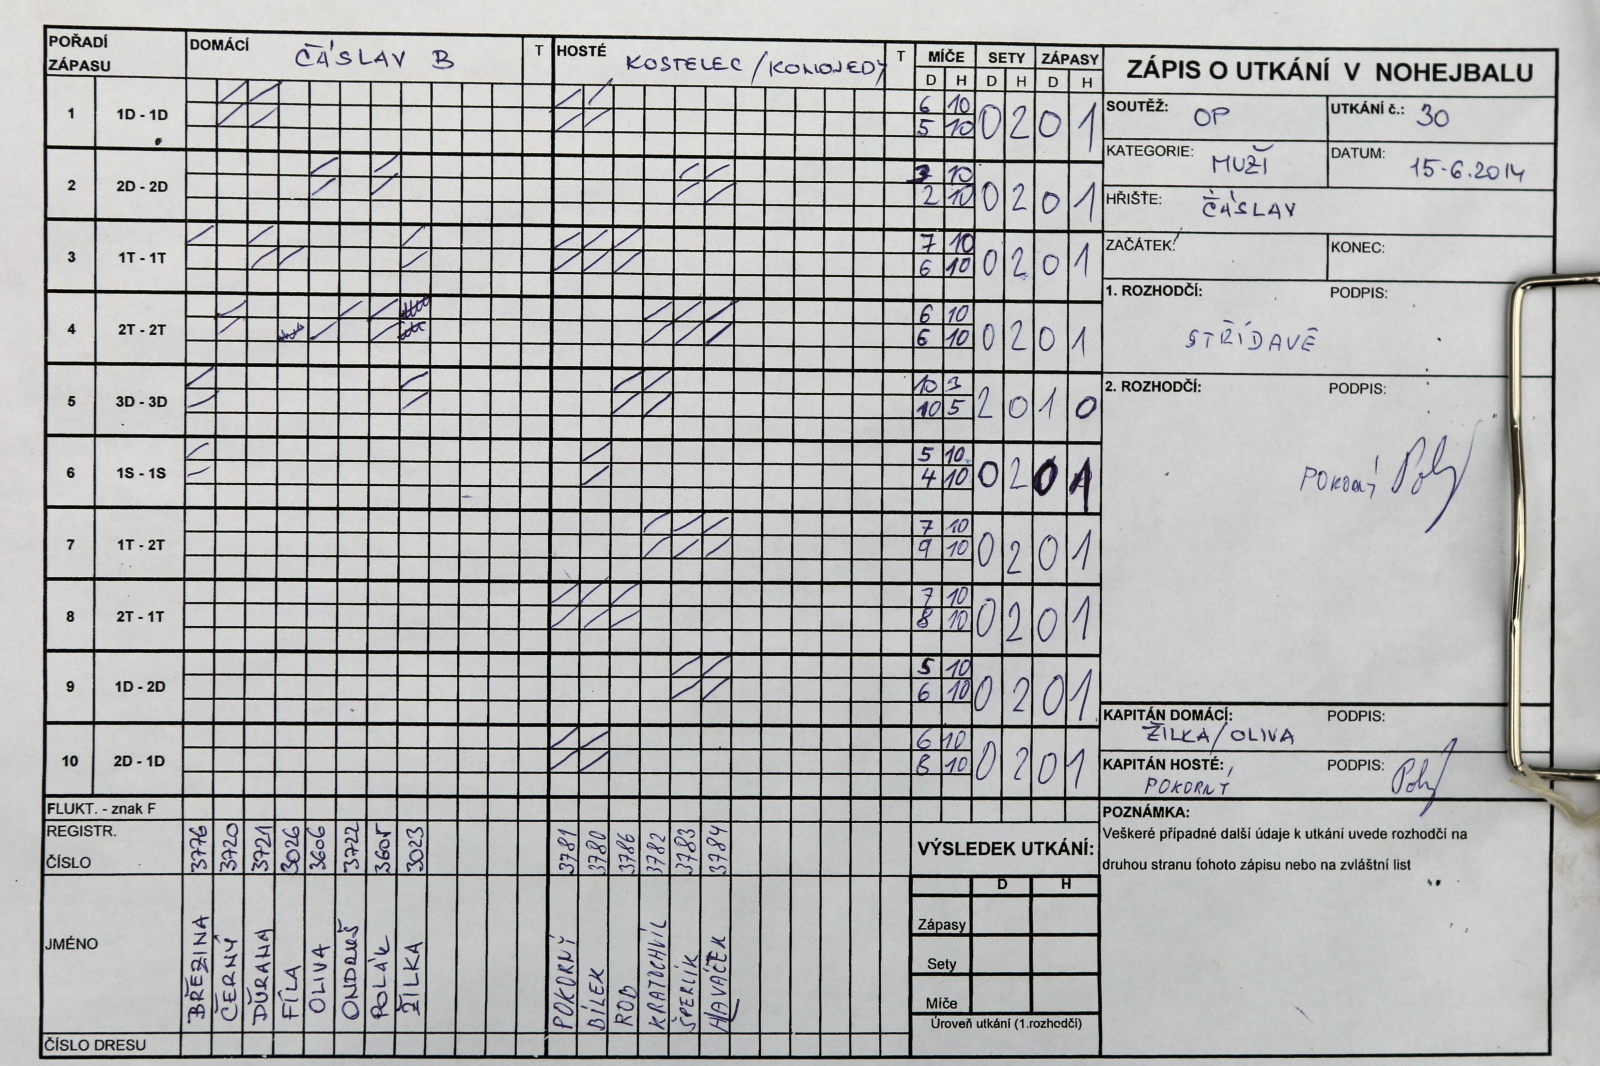 POŘADÍ ZÁPASU DOMÁCÍ ČÁSLAV B T HOSTÉ KOSTELEC/KOMOŘEDY T MÍČE SETY ZÁPASY
D H D H D H
1 1D - 1D 6 10 0 2 0 1
5 10
2 2D - 2D 3 10 0 2 0 1
2 10
3 1T - 1T 7 10 0 2 0 1
6 10
4 2T - 2T 6 10 0 2 0 1
6 10
5 3D - 3D 10 3 2 0 1 0
10 5
6 1S - 1S 5 10 0 2 0 1
4 10
7 1T - 2T 7 10 0 2 0 1
9 10
8 2T - 1T 7 10 0 2 0 1
8 10
9 1D - 2D 5 10 0 2 0 1
6 10
10 2D - 1D 6 10 0 2 0 1
8 10
FLUKT. - znak F
REGISTR. ČÍSLO 3776 3720 3721 3026 3606 3722 3605 3023 3781 3780 3786 3782 3783 3784
JMÉNO BŘEZINA ČERNÝ ĎURANA FÍLA OLIVA ONDRUŠ POLÁK ŽILKA POKORNÝ DÍLEK ROD KRATOCHVÍL ŠPERLÍK HLAVÁČEK
ČÍSLO DRESU
VÝSLEDEK UTKÁNÍ:
D H
Zápasy
Sety
Míče
Úroveň utkání (1.rozhodčí)
ZÁPIS O UTKÁNÍ V NOHEJBALU
SOUTĚŽ: OP UTKÁNÍ č.: 30
KATEGORIE: MUŽI DATUM: 15.6.2014
HŘIŠTE: ČÁSLAV
ZAČÁTEK: KONEC:
1. ROZHODČÍ: PODPIS:
STŘÍDAVĚ
2. ROZHODČÍ: PODPIS:
POKORNÝ
KAPITÁN DOMÁCÍ: PODPIS:
ŽILKA/OLIVA
KAPITÁN HOSTÉ: PODPIS:
POKORNÝ
POZNÁMKA:
Veškeré případné další údaje k utkání uvede rozhodčí na
druhou stranu tohoto zápisu nebo na zvláštní list